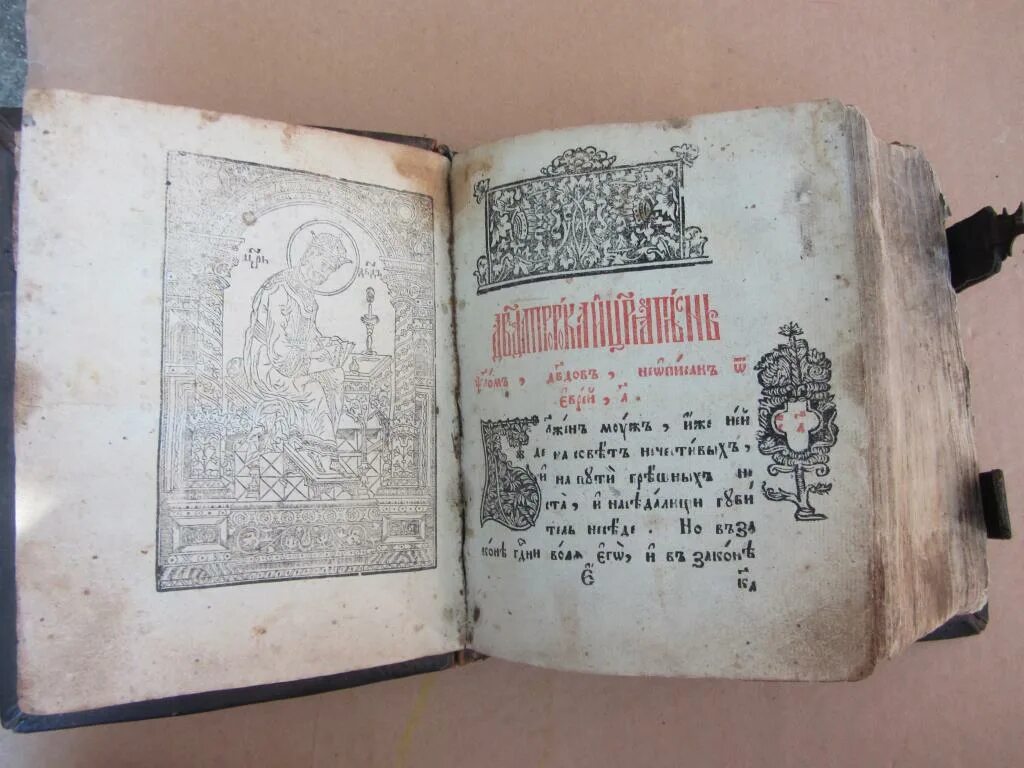 цр҃ь
дв҃дъ
дв҃да прⷪ҇рока и҆ цр҃ѧ пѣснь
ѱⷧ҇о́мъ , дв҃довъ , неѡ҆пи́санъ ѿ
є҆врє́й , а҃ .
Блаже́нъ моу́жъ , и҆́же не и҆́
де на совѣ́тъ нечести́выхъ ,
и҆ на пути̇̀ грѣ́шныхъ не
ста̀ , и҆ на сѣда́лищи гу́би
тель не сѣ́де . Но въ за
ко́нѣ гд҇ни во́лѧ є҆гѡ̀ , и҆ въ зако́нѣ
є҃
к҃а